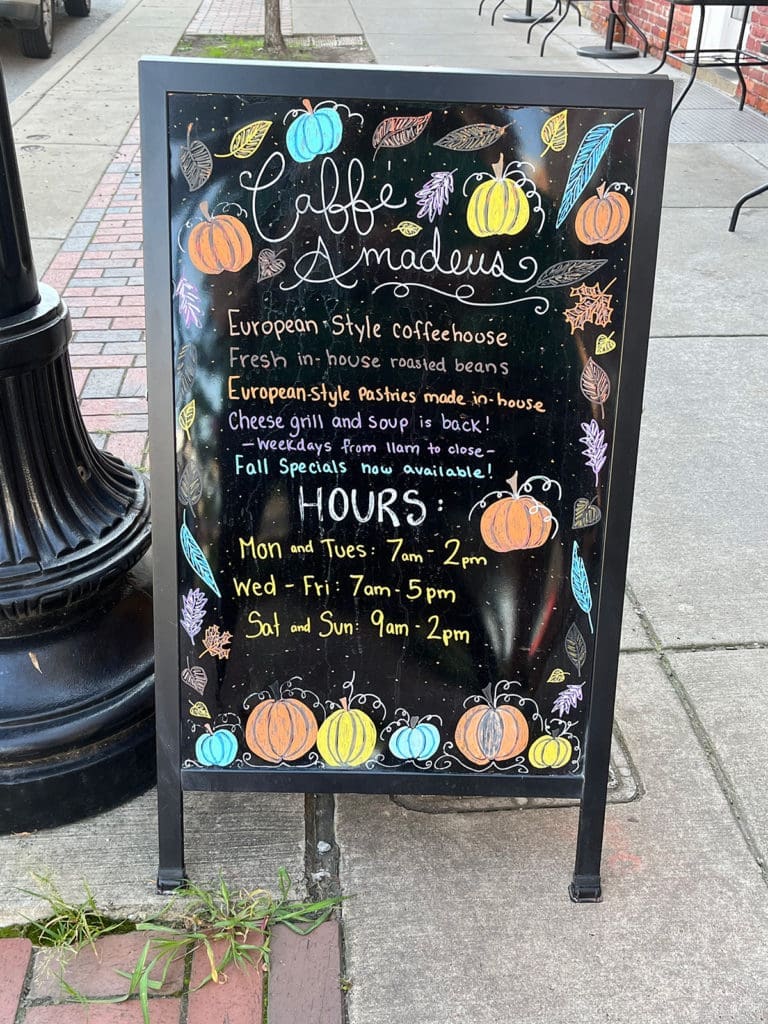 Caffé
Amadeus
European-Style coffeehouse
Fresh in-house roasted beans
European-style Pastries made in-house
Cheese grill and soup is back!
- Weekdays from 11am to close -
Fall Specials now available!
HOURS:
Mon and Tues: 7am - 2pm
Wed - Fri: 7am - 5pm
Sat and Sun: 9am - 2pm